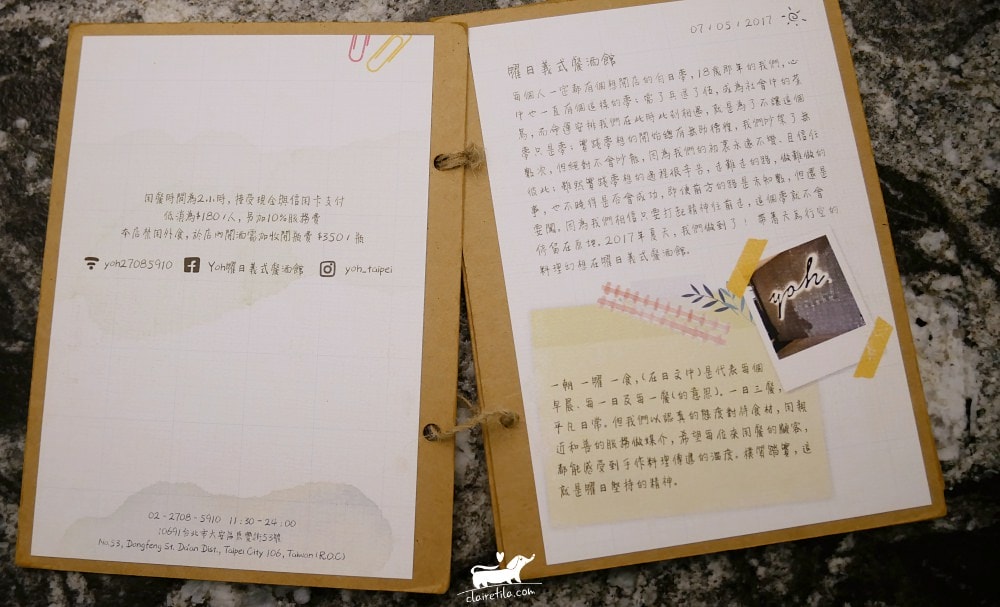 用餐時間為2小時，接受現金與信用卡支付
低消為$180/人，另加10%服務費
本店禁用外食，於店內開酒需加收開瓶費 $350/瓶
yoh27085910 Yoh曜日義式餐酒館 yoh_taipei
02-2708-5910 11:30-24:00
10691台北市大安區東豐街53號
No.53, Dongfeng St. Da'an Dist., Taipei City 106, Taiwan (R.O.C)
07/05/2017
曜日義式餐酒館
每個人一定都有個想開店的白日夢，18歲那年的我們，心
中也一直有個這樣的夢；當了兵退了伍，成為社會中的菜
鳥，而命運安排我們在此時此刻相遇，就是為了不讓這個
夢只是夢；實踐夢想的開始總有無助徬徨，我們吵架了無
數次，但絕對不會吵散，因為我們的初衷永遠不變，且信任
彼此；雖然實踐夢想的過程很辛苦，走難走的路，做難做的
事，也不曉得是否會成功，即便前方的路是未知數，但還是
要闖，因為我們相信只要打起精神往前走，這個夢就不會
停留在原地。2017年夏天，我們做到了！帶著天馬行空的
料理幻想在曜日義式餐酒館。
yoh
一朝 一曜 一食，(在日文中)是代表每個
早晨、每一日及每一餐(的意思)。一日三餐，
平凡日常。但我們以認真的態度對待食材，用親
近和善的服務做媒介，希望每位來用餐的顧客，
都能感受到手作料理傳遞的溫度。樸實踏實，這
就是曜日堅持的精神。
clairetila.com